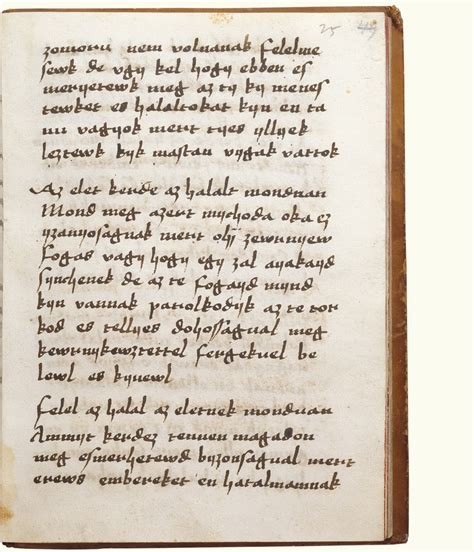 25 49
zomoru nem volnanak felelme
sewk de vgy kel hogy ebben es
meryetewk meg az ty ky menes
tewket es halaltokat kyn en ta
nu vagyok mert tyes yllyek
leztewk kyk mastan vygak vattok
Az elet kerde az halalt monduan
Mond meg azert mychoda oka ez
yzanyosagnak mert oly zewrnyew
fogas vagy hogy egy zal ayakayd
synchenek de az te fogayd mynd
kyn vannak patolkodyk az te tor
kod es tellyes dohossagual meg
kewrnykewztettel fergekuel be
lewl es kyuewl
felel az halal az eletnek monduan
Ammyt kerdez tennen magadon
meg esmerhetewd byzonsagual mert
erews embereket en hatalmamnak